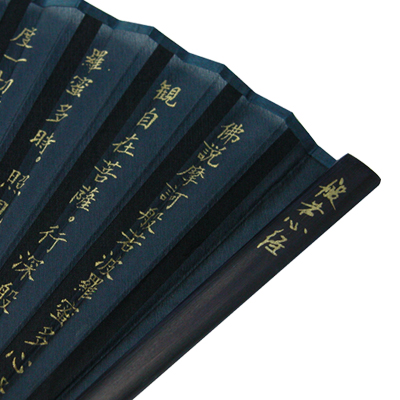 般若心経
佛説摩訶般若波羅蜜多心
観自在菩薩。行深般
羅蜜多時。照見
度一切